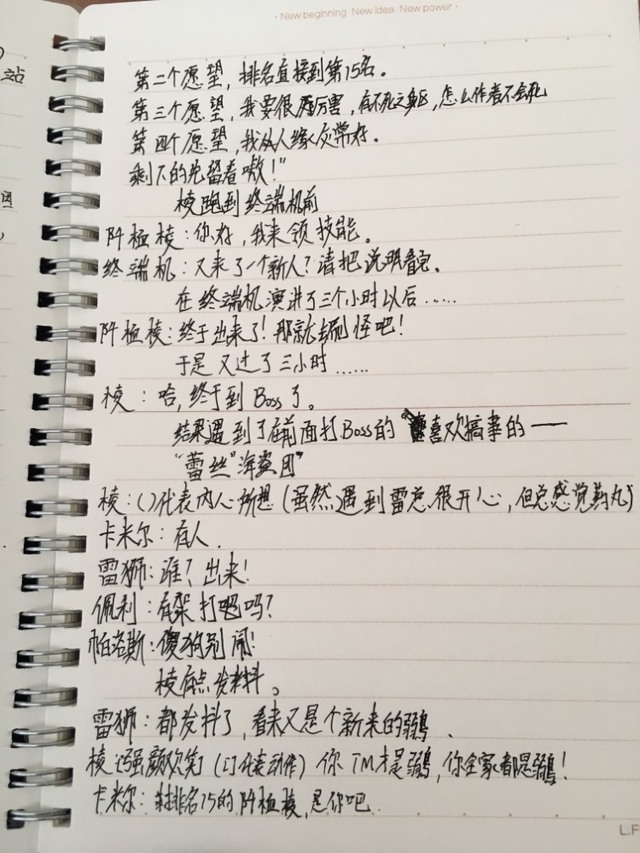 · New beginning New idea New power ·
站
第二个愿望,排名直接到第15名。
第三个愿望,我要很厉害,有不死之身区,怎么作者不会死
第四个愿望,我的人缘父常好。
剩下的先留着嗷!"
棱跑到终端机前
阡桓棱:你好,我来领技能。
终端机:又来了一个新人?请把说明看完。
在终端机演讲了三个小时以后……
阡桓棱:终于出来了!那就去刷怪吧!
于是又过了三小时……
棱:哈,终于到Boss了。
结果遇到了在前面打Boss的"喜欢搞事的——
"蕾丝"海盗团"
棱:()代表内心所想(虽然遇到雷总很开心,但总感觉药丸)
卡米尔:有人.
雷狮:谁?出来!
佩利:有架打吧吗?
帕洛斯:傻狗别闹!
棱有点发料抖。
雷狮:都发抖了,看来又是个新来的弱鸡.
棱[强颜欢笑([]代表动作)你TM才是弱鸡,你全家都是弱鸡!
卡米尔:排名15的阡桓棱,是你吧.
L.F